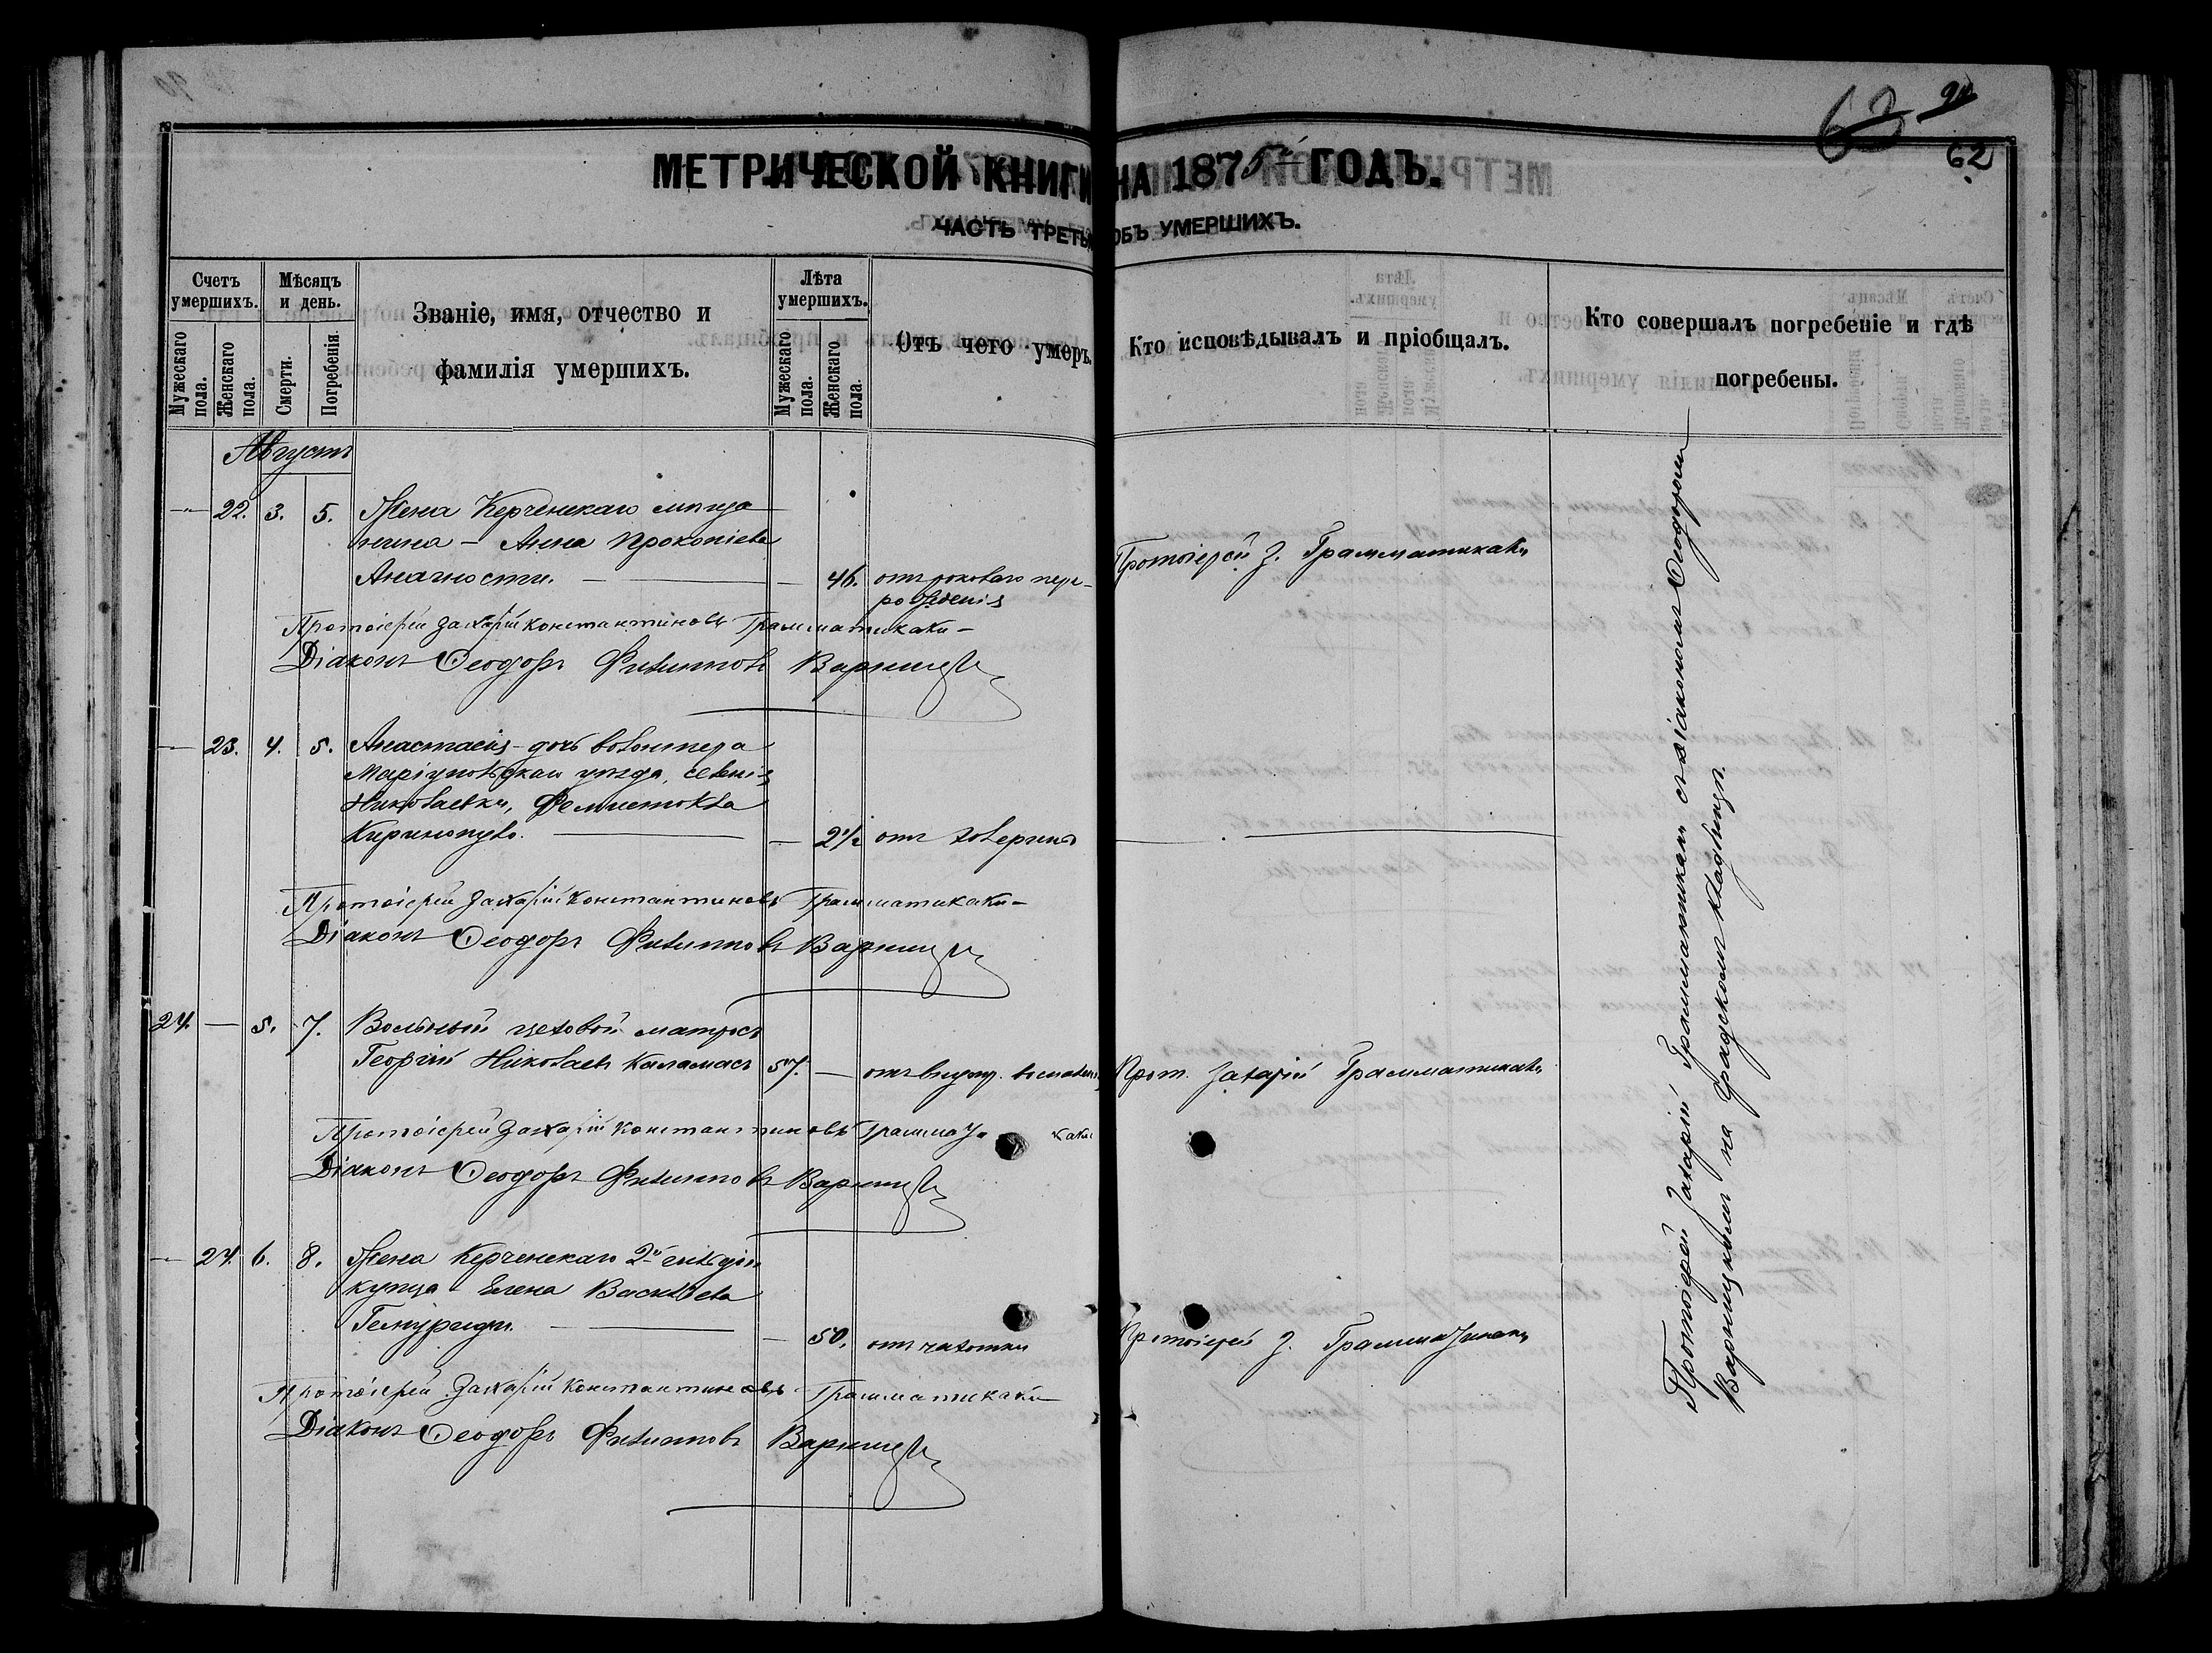 90
63
62
МЕТРИЧЕСКОЙ КНИГИ НА 1875й ГОДЪ.
ЧАСТЬ ТРЕТЬЯ ОБЪ УМЕРШИХЪ.
Счетъ умершихъ.
Мужескаго пола.
Женскаго пола.
Мѣсяцъ и день.
Смерти.
Погребенія.
Званіе, имя, отчество и
фамилія умершихъ.
Лѣта умершихъ.
Мужескаго пола.
Женскаго пола.
Отъ чего умеръ.
Кто исповѣдывалъ и пріобщалъ.
Кто совершалъ погребеніе и гдѣ
погребены.
Августъ
22. 3. 5. Жена Керченскаго мѣща
нина – Анна Прокопіева
46. отъ роковаго пере-
рожденія
Протоіерей З. Грамматикаки
Протоіерей Захарій Константиновъ Грамматикаки
Діаконъ Ѳеодоръ Филипповъ Варницкій
23. 4. 5. Анастасія – дочь волонтера
Маріупольскаго уѣзда, селенія
Николаевки, Ѳемистокла
— 2½ отъ холерина
Протоіерей Захарій Константиновъ Грамматикаки
Діаконъ Ѳеодоръ Филипповъ Варницкій
24. — 5. 7. Вольный цеховой матросъ
Георгій Николаевъ Каламасъ 57. — отъ внутр. воспаленія Прот. Захарій Грамматикаки
Протоіерей Захарій Константиновъ Грамматикаки
Діаконъ Ѳеодоръ Филипповъ Варницкій
— 24. 6. 8. Жена Керченскаго 2й гильдіи
купца Елена Васильева
— 50. отъ чахотки Протоіерей З. Грамматикаки
Протоіерей Захарій Константиновъ Грамматикаки
Діаконъ Ѳеодоръ Филипповъ Варницкій
Протоіерей Захарій Грамматикаки съ діакономъ Ѳеодоромъ
Варницкимъ на градскомъ кладбищѣ.